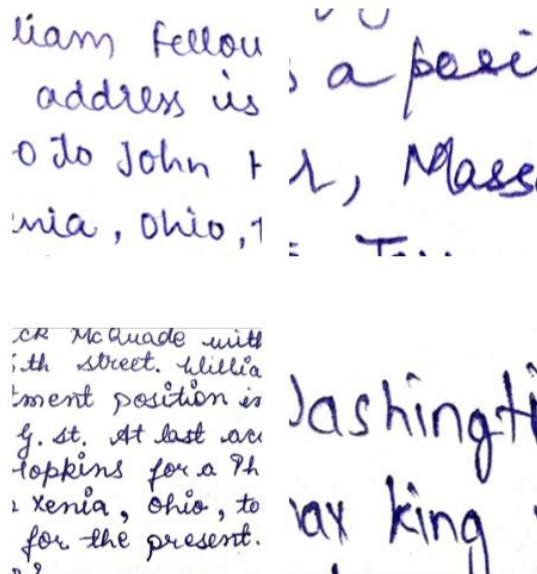 liam fellow
address is
o to John H
nia, Ohio, t
a posi
r, Mass
ck McQuade with
th street. Willia
tment position is
G. st. At last acc
Hopkins for a Ph
Xenia, Ohio, to
for the present.
Washingt
ax king